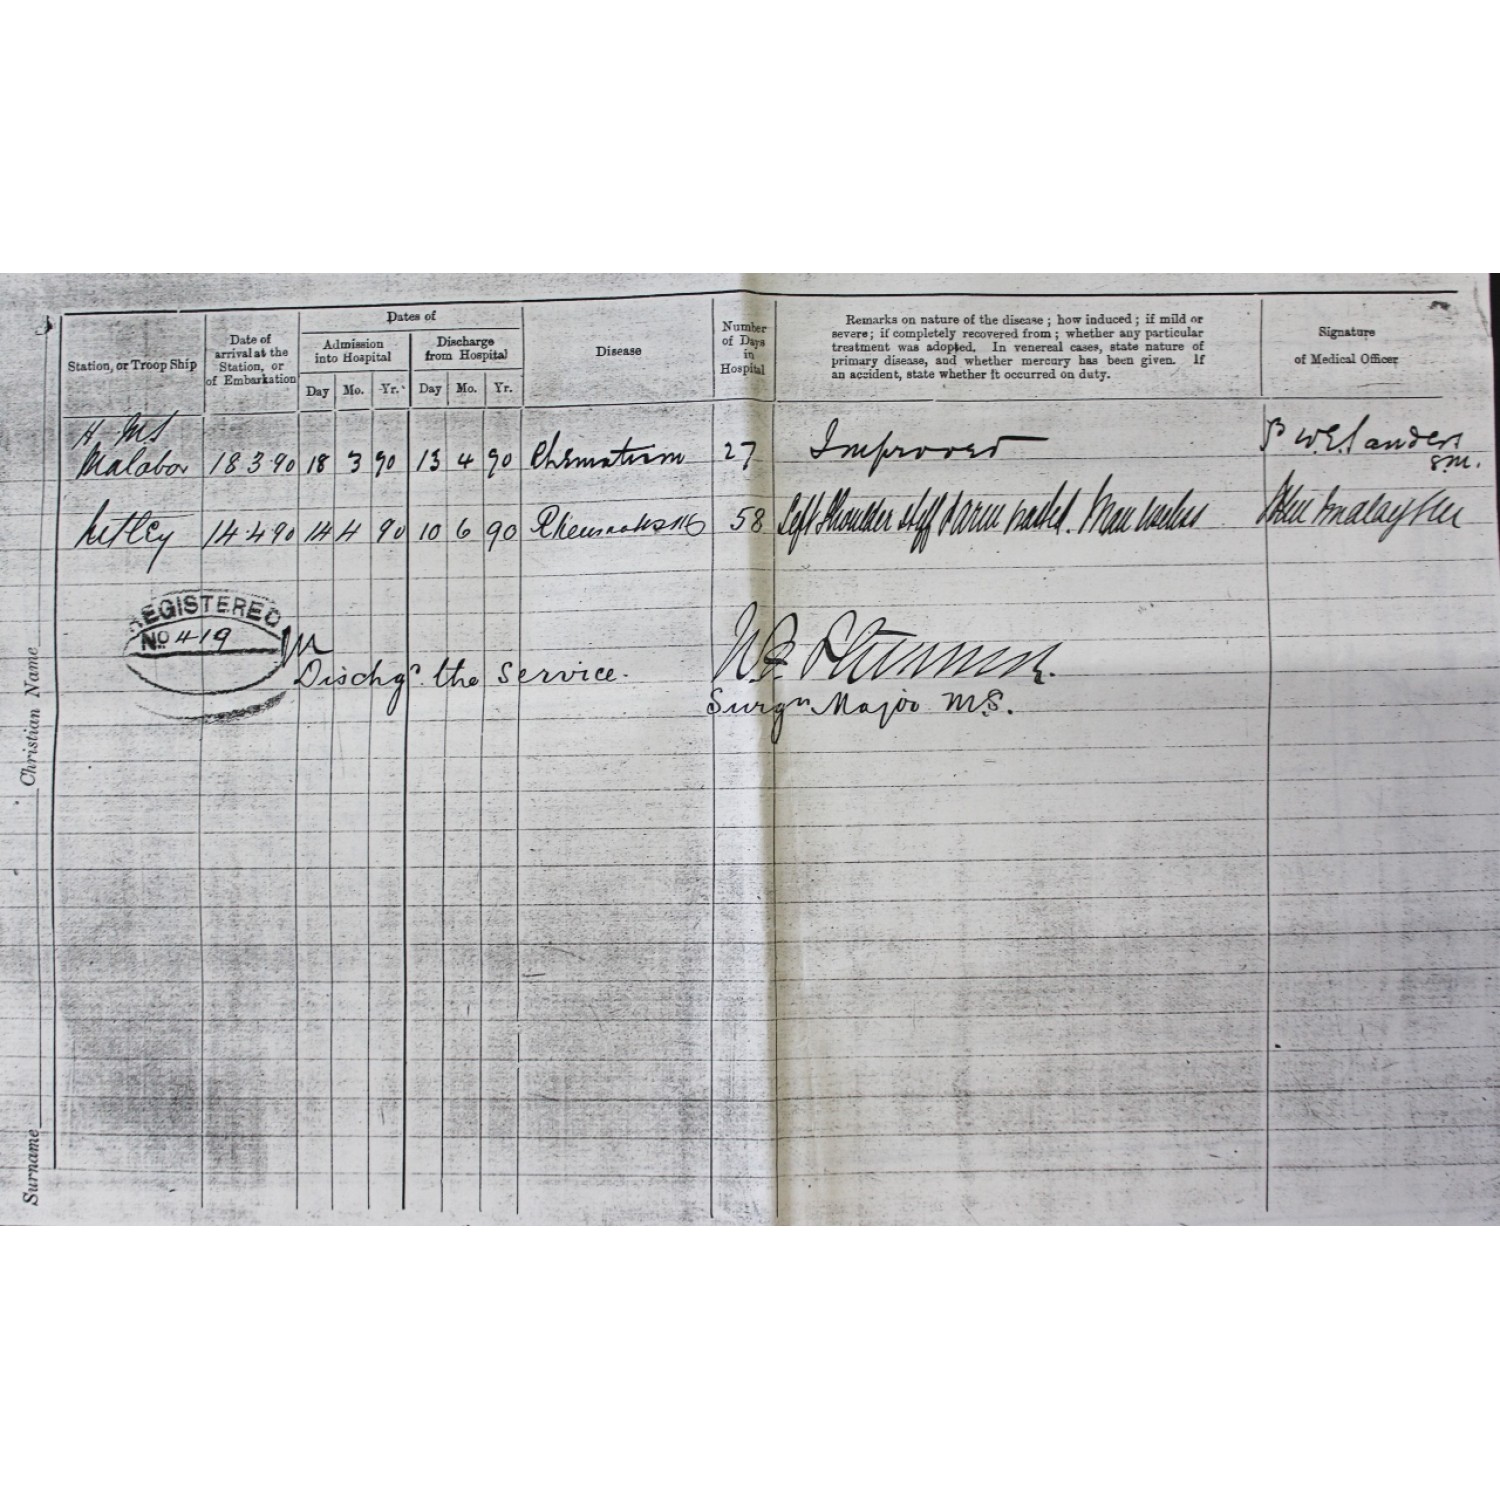 Dates of
Station, or Troop Ship Date of arrival at the Station, or of Embarkation Admission into Hospital Discharge from Hospital Disease Number of Days in Hospital
Day Mo. Yr. Day Mo. Yr.
Remarks on nature of the disease; how induced; if mild or
severe; if completely recovered from; whether any particular
treatment was adopted. In venereal cases, state nature of
primary disease, and whether mercury has been given. If
an accident, state whether it occurred on duty.
Signature
of Medical Officer
H MS
Malabar 18 3 90 18 3 90 13 4 90 Rhematism 27 Improved W.E. Sanders
S.M.
Netley 14 4 90 14 4 90 10 6 90 Rheumatism 58 Left Shoulder stiff & arm wasted. Man
REGISTERED
No 419
Dischgd. the Service.
Surgn. Major M.S.
Surname Christian Name